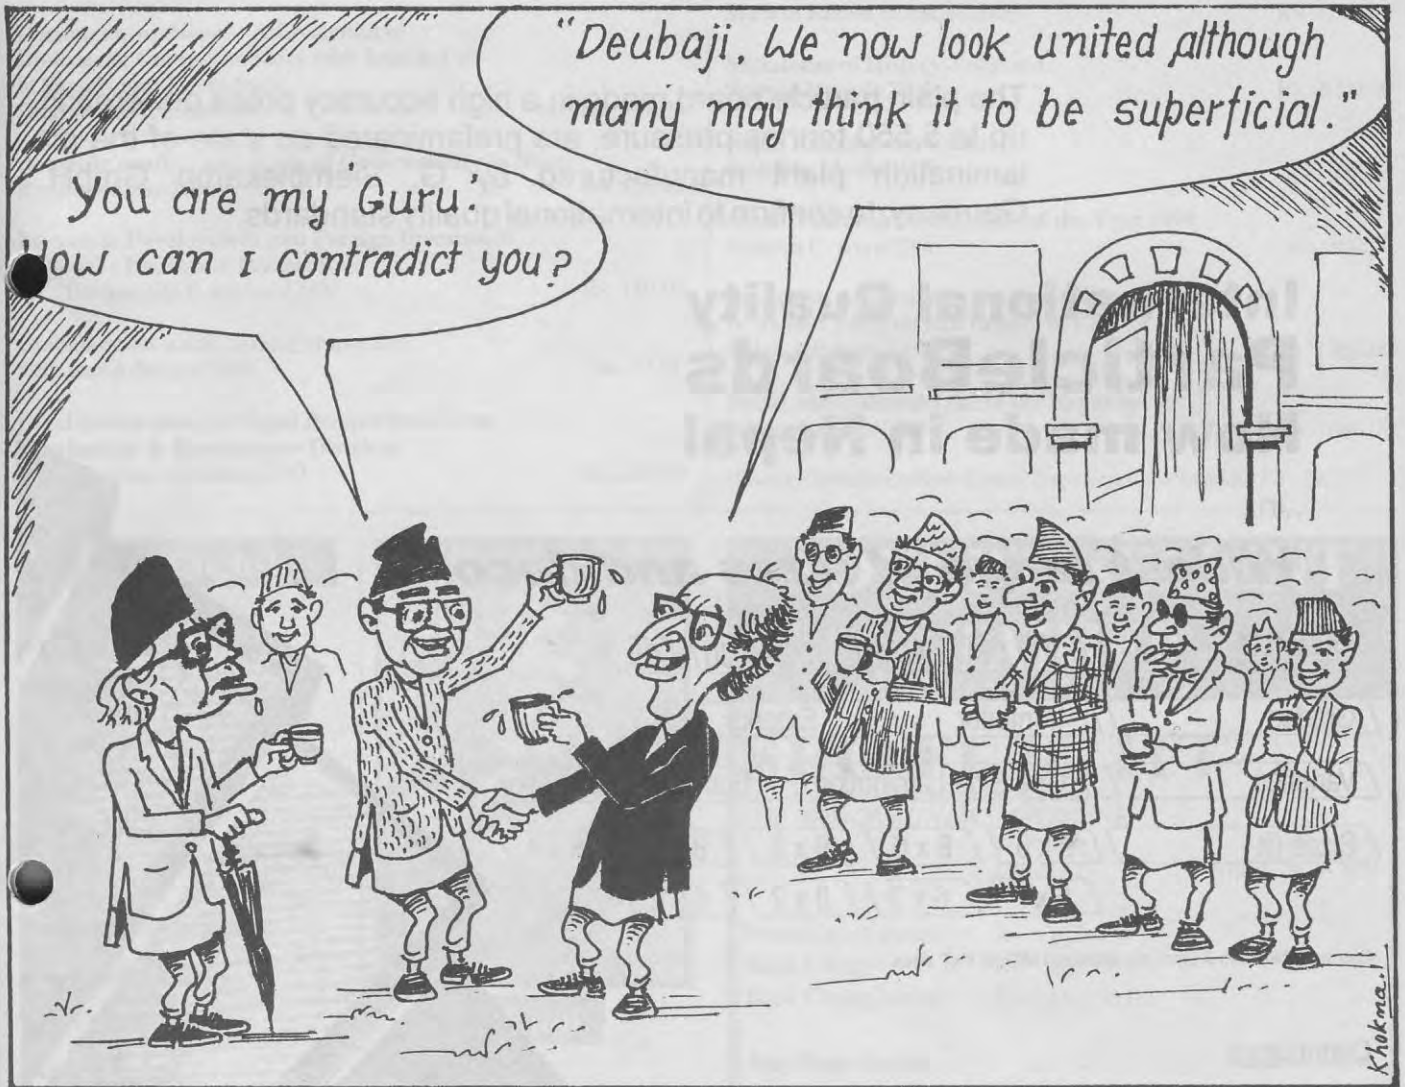 "Deubaji, We now look united although
many may think it to be superficial."
You are my 'Guru'.
How can I contradict you?
Khokna!